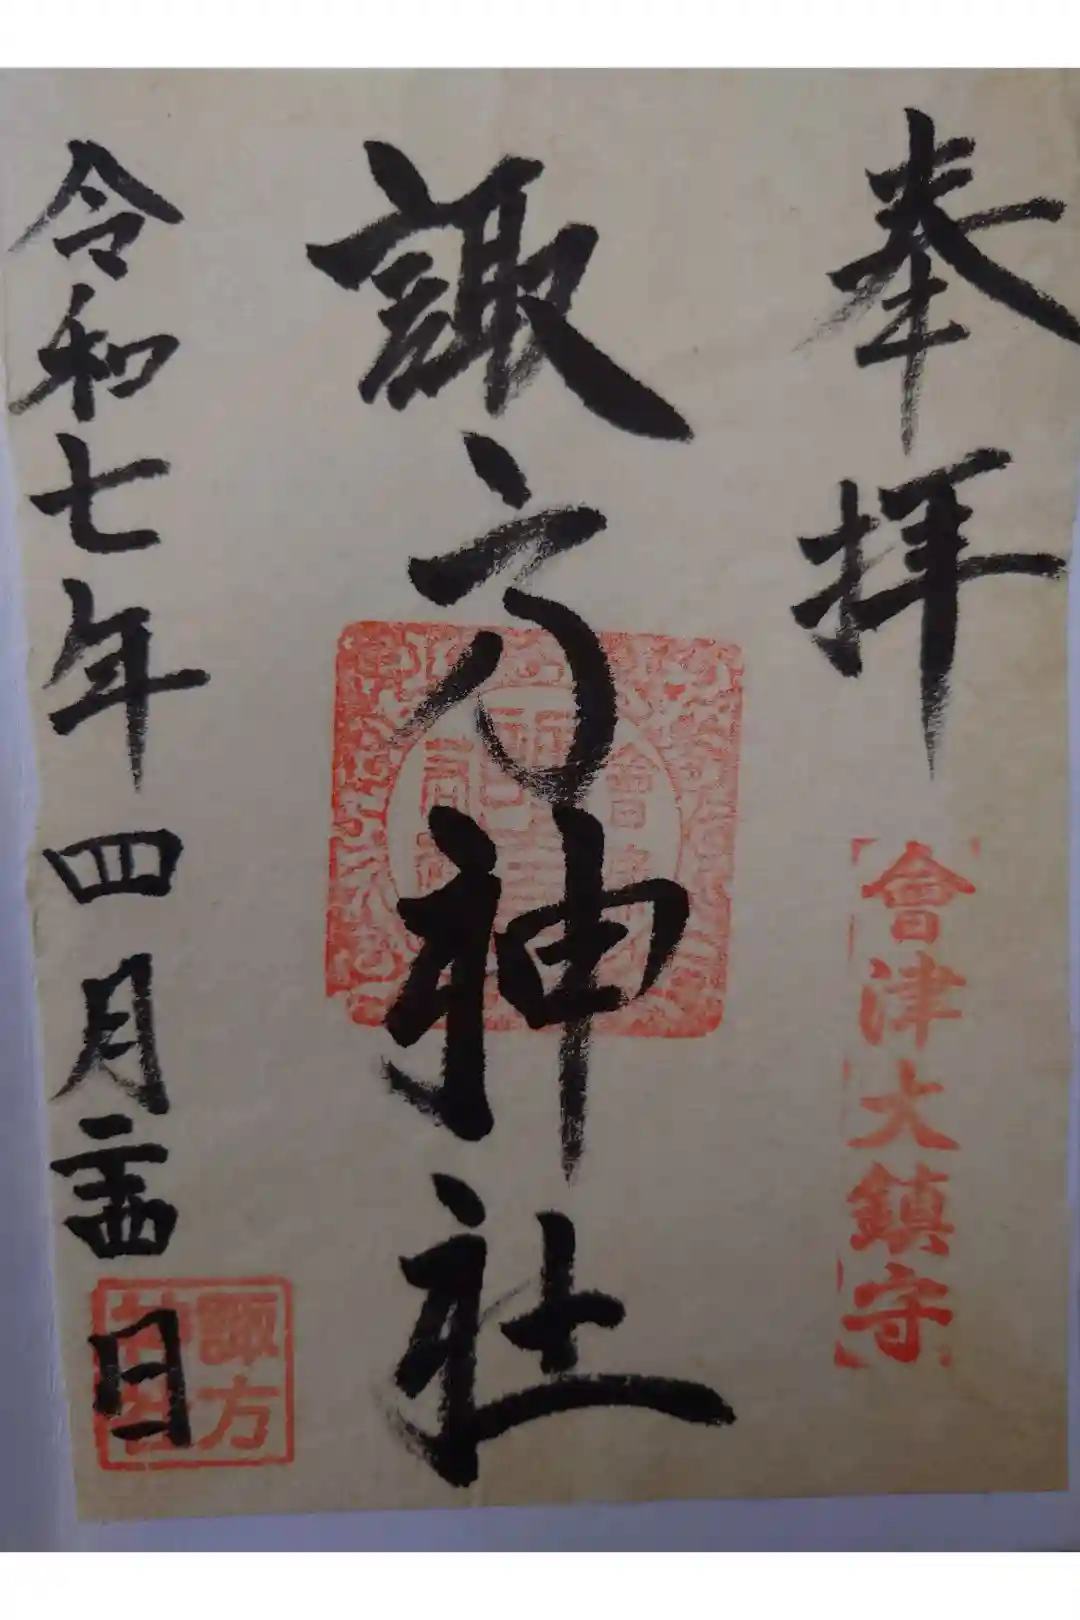 奉拝
會津大鎮守
諏方神社
令和七年四月
日
諏方
神社